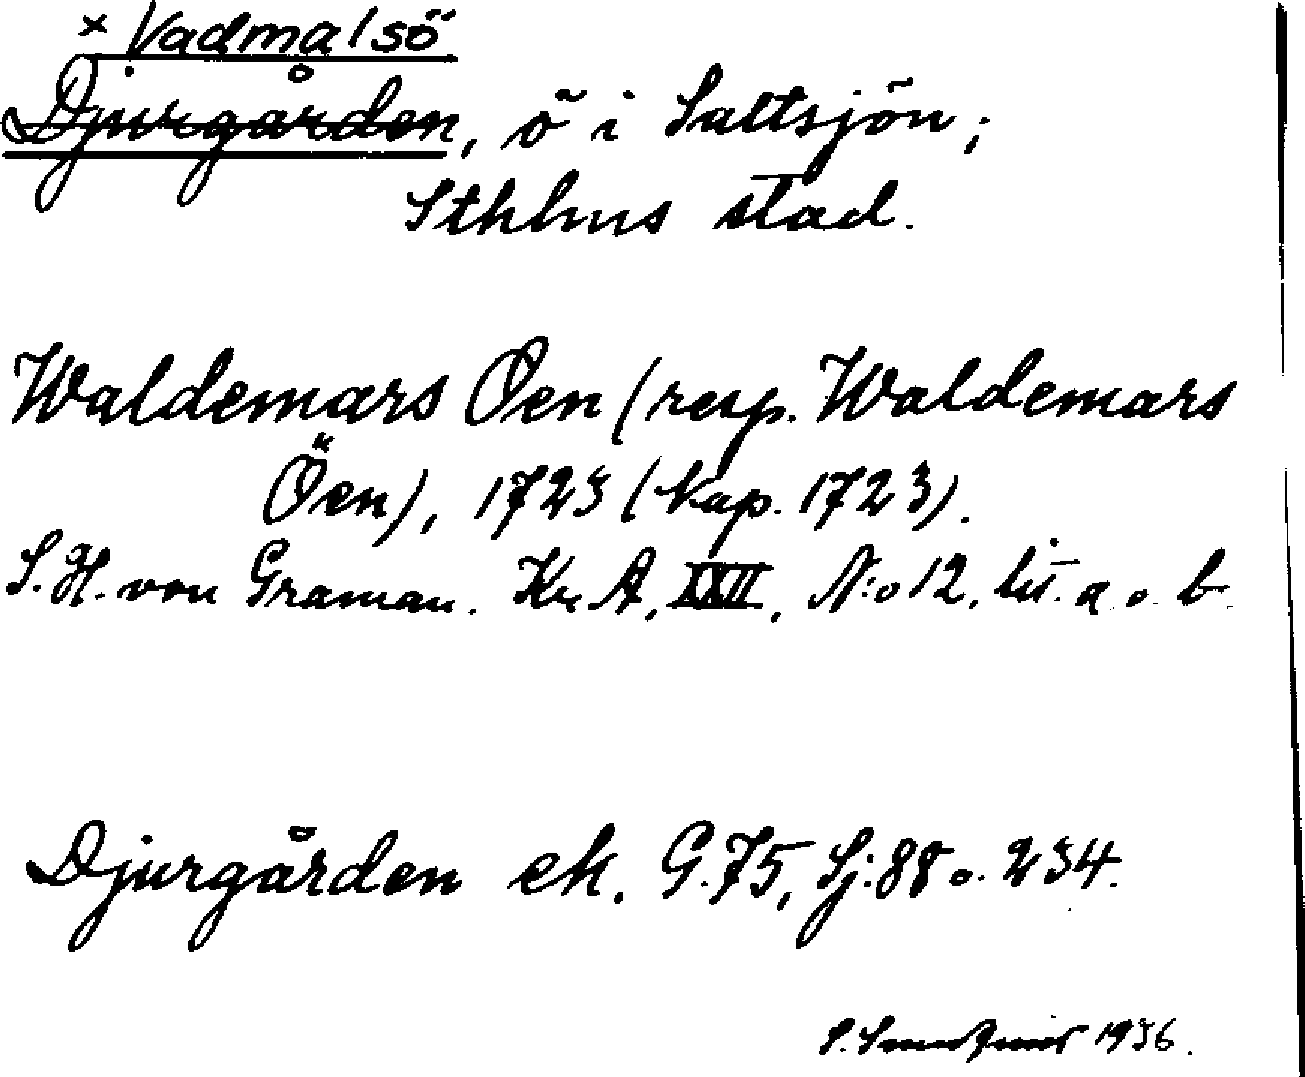 × Vadmalsö
Djurgården, ö i Saltsjön;
Sthlms stad.
Waldemars Öen (resp. Waldemars
Öen), 1723 (kop. 1723).
S. H. von Graman. Kr A, XXII, N:o 12, lit. a o b.
Djurgården ek. G.75, Sj:88 o. 234.
S. 1936.